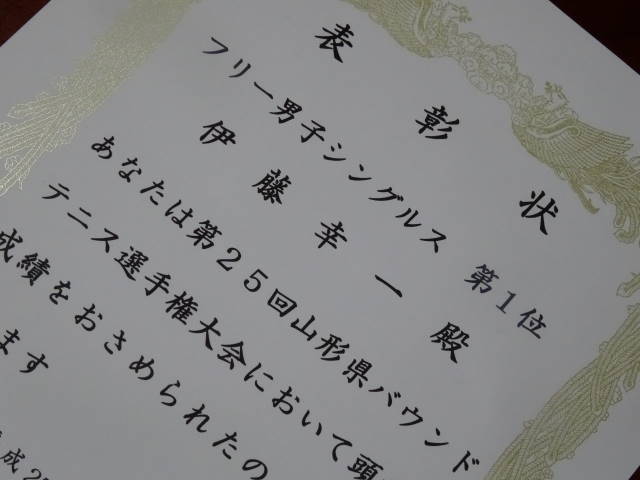 表彰状
フリー男子シングルス 第1位
伊藤幸一殿
あなたは第25回山形県バウンド
テニス選手権大会において頭
成績をおさめられたの
ます
成2